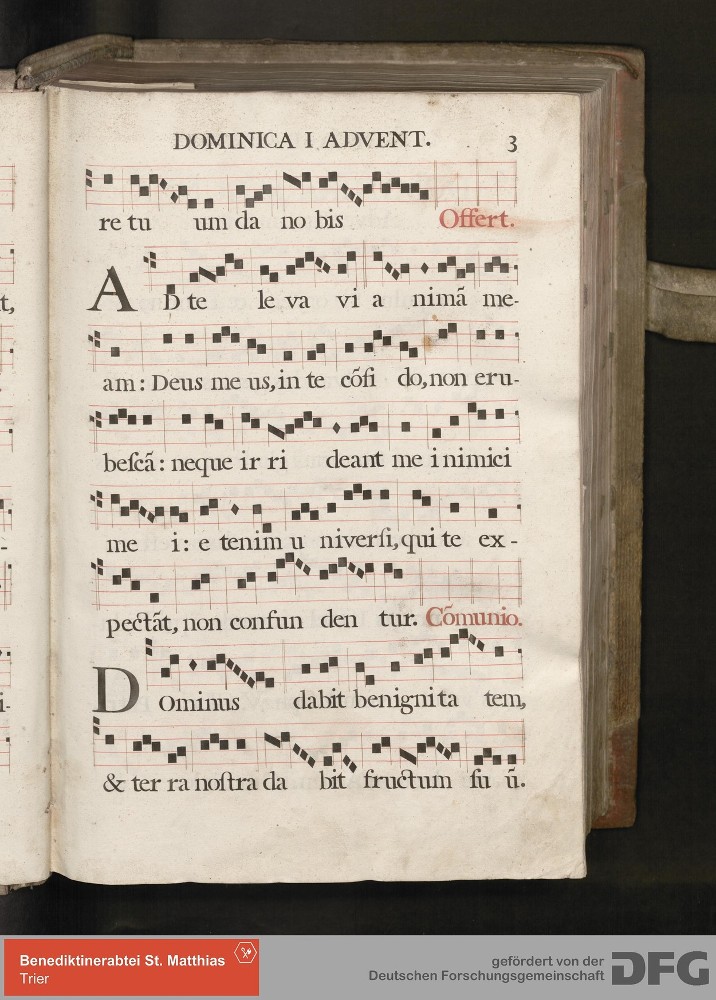 DOMINICA I ADVENT. 3
re tu um da no bis Offert.
AD te le va vi a nimã me-
t,
am: Deus me us, in te cõfi do, non eru-
beſcã: neque ir ri deant me i nimici
me i: e tenim u niverſi, qui te ex-
-
pectãt, non confun den tur. Cõmunio.
DOminus dabit benigni ta tem,
i-
& ter ra noſtra da bit fructum ſu ũ.
Benediktinerabtei St. Matthias
Trier
gefördert von der
Deutschen Forschungsgemeinschaft DFG